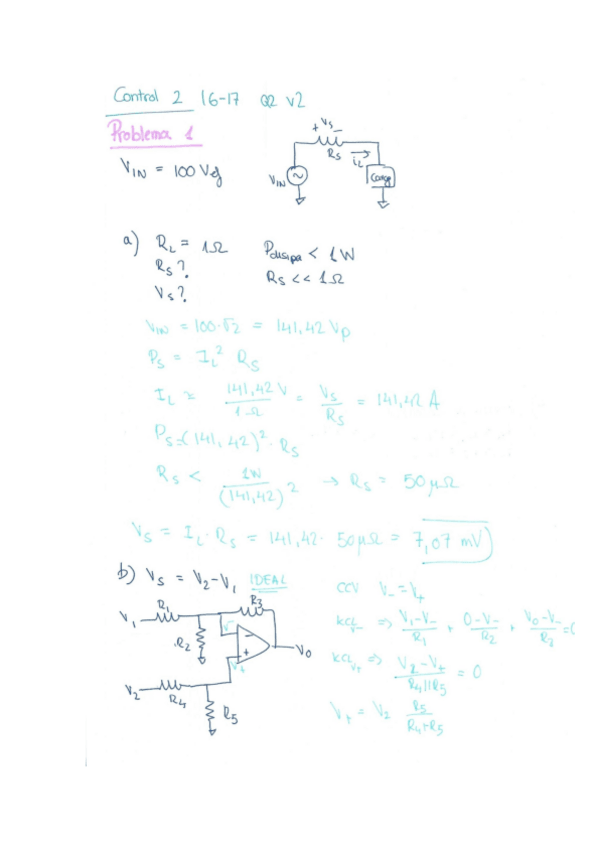 Control 2 16-17 Q2 V2
Problema 1
V_IN = 100 Vef
+ Vs -
Rs iL
V_IN
Carga
a) R_L = 1Ω P_disipa < 1W
Rs? Rs << 1Ω
Vs?
V_IN = 100·√2 = 141,42 Vp
Ps = I_L² Rs
I_L ≈ 141,42 V / 1Ω = Vs / Rs = 141,42 A
Ps = (141,42)² · Rs
Rs < 1W / (141,42)² → Rs = 50 μΩ
Vs = I_L · Rs = 141,42 · 50 μΩ = 7,07 mV
b) Vs = V2 - V1 IDEAL
CCV V- = V+
V1 R1 R3
R2
V-
V+
- +
Vo
KCL V- => (V1 - V-) / R1 + (0 - V-) / R2 + (Vo - V-) / R3 = 0
V2 R4
R5
KCL V+ => (V2 - V+) / (R4||R5) = 0
V+ = V2 R5 / (R4+R5)